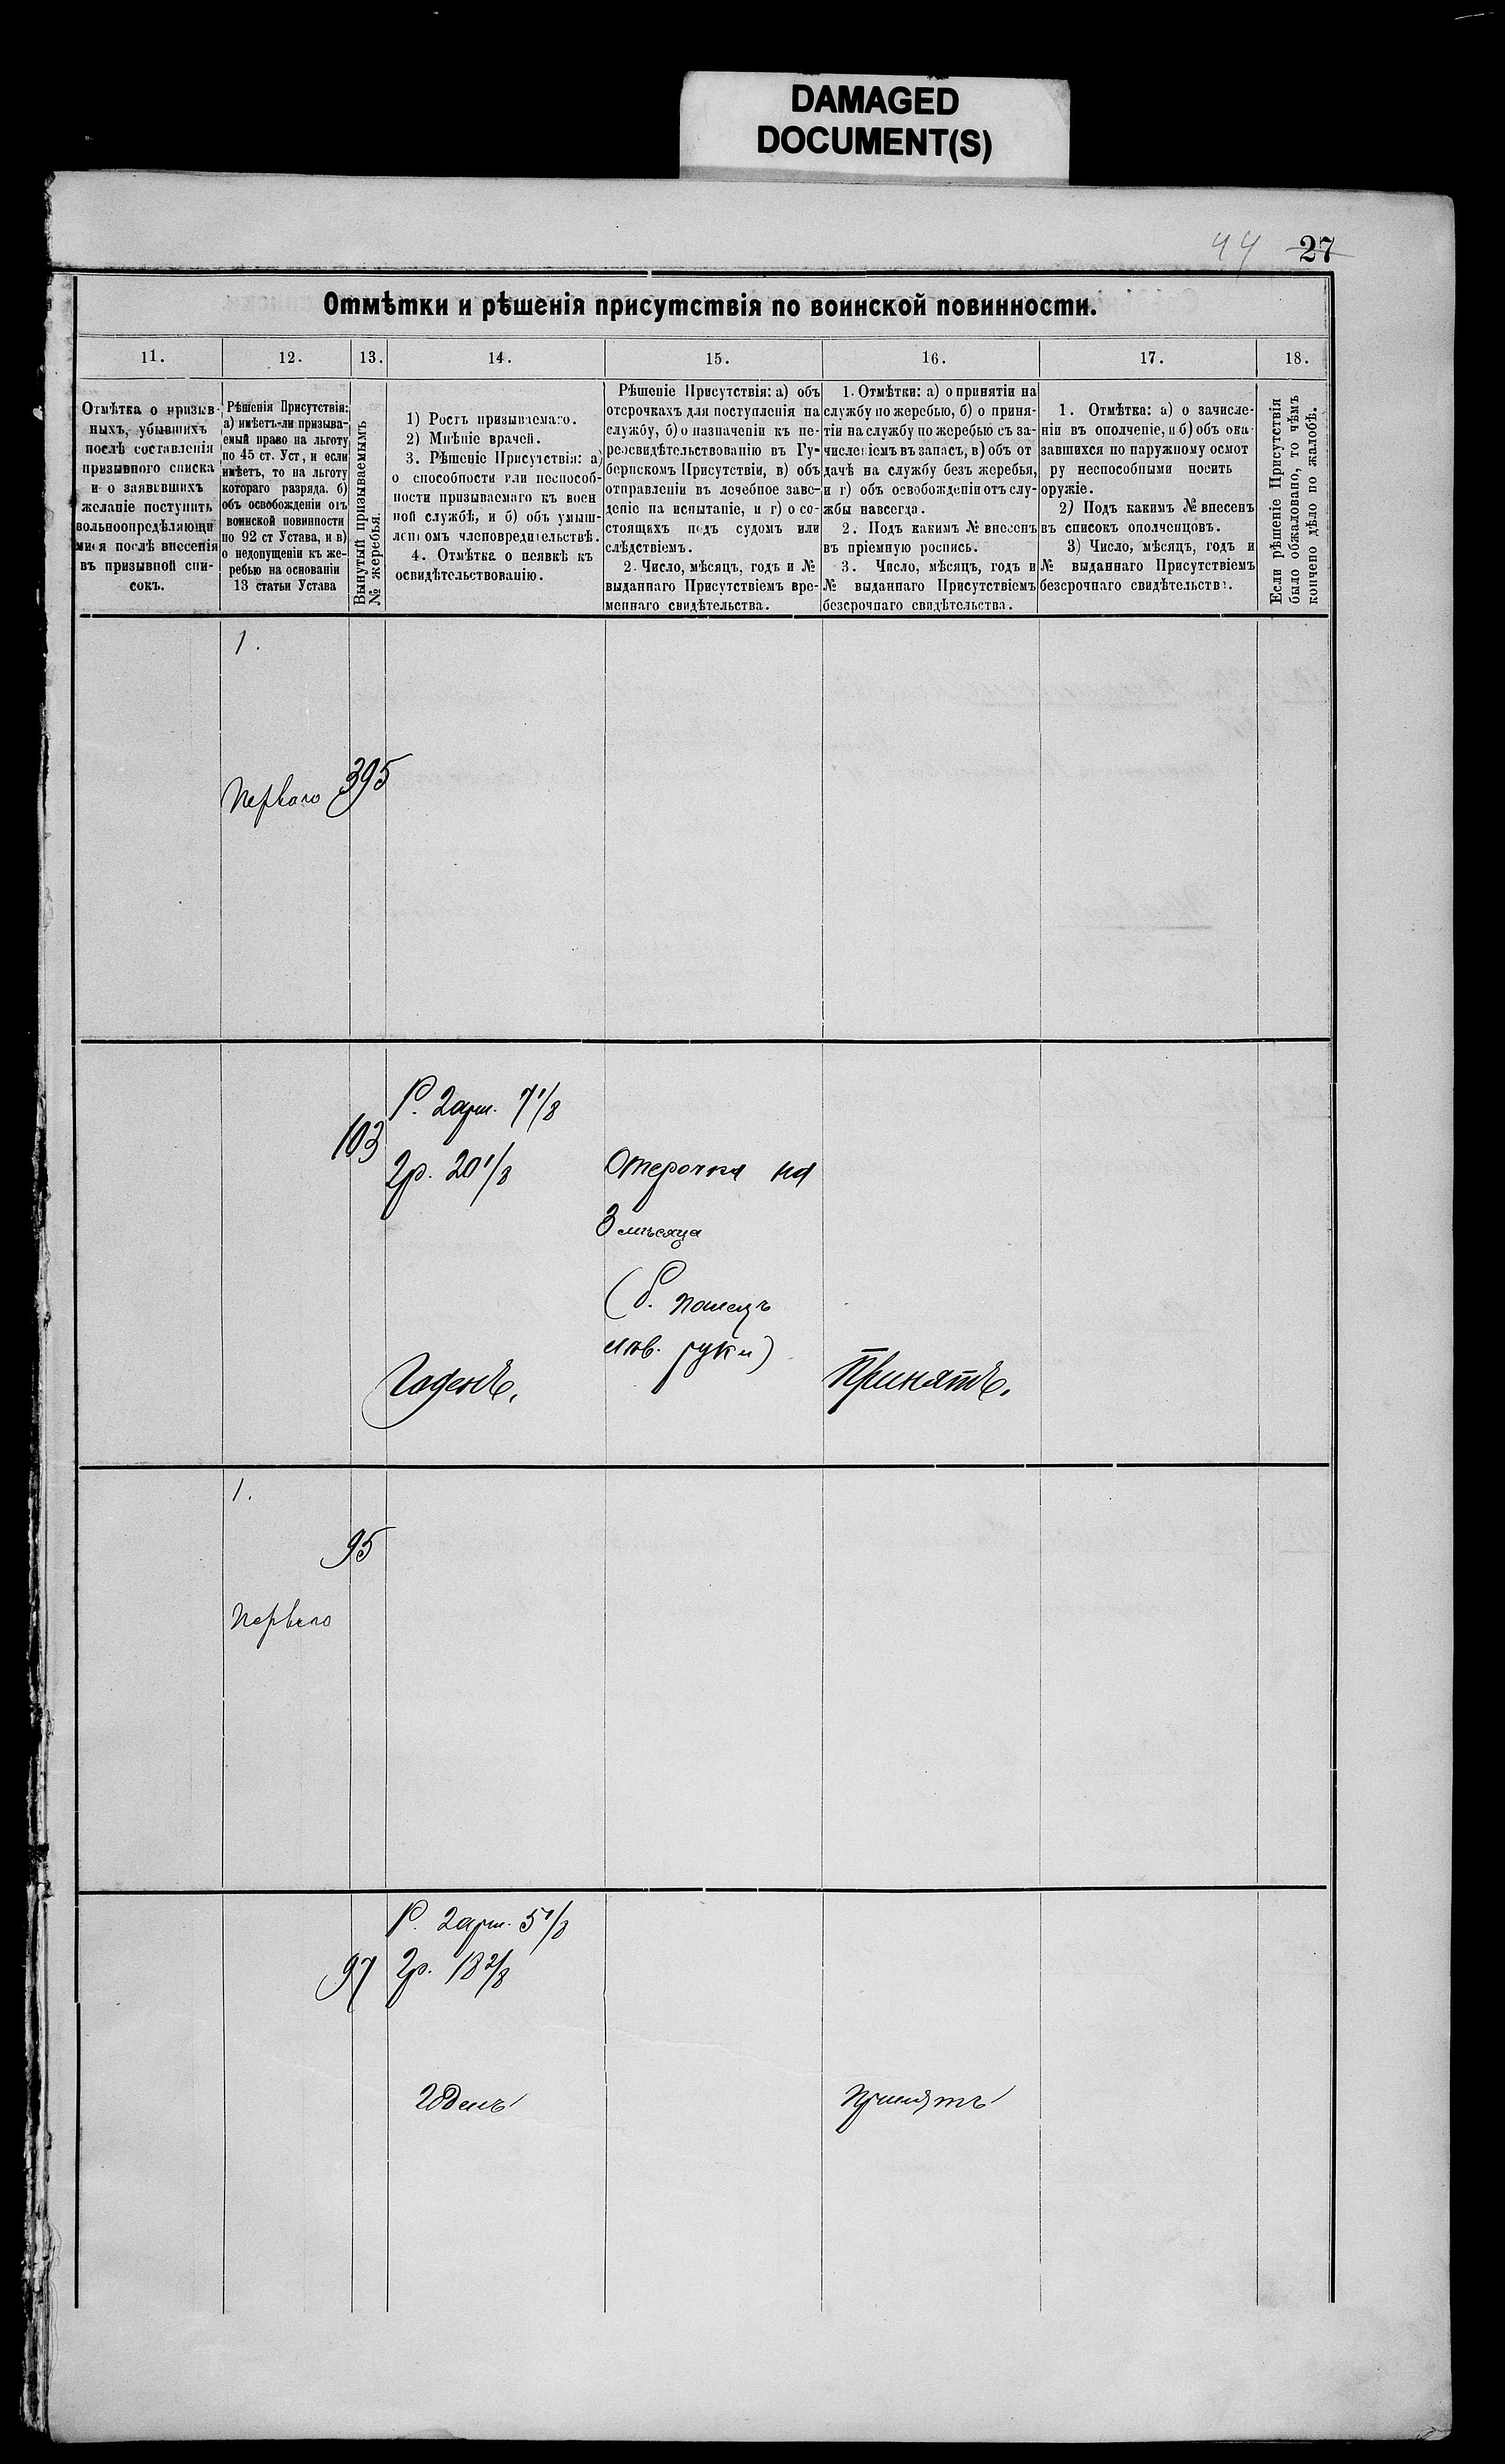 DAMAGED
DOCUMENT(S)
44 27
Отмѣтки и рѣшенія присутствія по воинской повинности.
11. 12. 13. 14. 15. 16. 17. 18.
Отмѣтка о призыв-
ныхъ, убывшихъ
послѣ составленія
призывного списка
и о заявившихъ
желаніе поступить
вольноопредѣляющи
мися послѣ внесенія
въ призывной спи-
сокъ.
Рѣшенія Присутствія:
а) имѣетъ-ли призыва-
емый право на льготу
по 45 ст. Уст, и если
имѣетъ, то на льготу
котораго разряда. б)
объ освобожденіи отъ
воинской повинности
по 92 ст Устава, и в)
о недопущеніи къ же-
ребью на основаніи
13 статьи Устава
Вынутый призываемымъ
№ жеребья.
1) Ростъ призываемаго.
2) Мнѣніе врачей.
3. Рѣшеніе Присутствія: а)
о способности или неспособ-
ности призываемаго къ воен
ной службѣ, и б) объ умыш-
ленномъ членовредительствѣ.
4. Отмѣтка о неявкѣ къ
освидѣтельствованію.
Рѣшеніе Присутствія: а) объ
отсрочкахъ для поступленія на
службу, б) о назначеніи къ пе-
реосвидѣтельствованію въ Гу-
бернскомъ Присутствіи, в) объ
отправленіи въ лечебное заве-
деніе на испытаніе, и г) о со-
стоящихъ подъ судомъ или
слѣдствіемъ.
2. Число, мѣсяцъ, годъ и №
выданнаго Присутствіемъ вре-
меннаго свидѣтельства.
1. Отмѣтки: а) о принятіи на
службу по жеребью, б) о приня-
тіи на службу по жеребью съ за-
численіемъ въ запасъ, в) объ от
дачѣ на службу безъ жеребья,
и г) объ освобожденіи отъ слу-
жбы навсегда.
2. Подъ какимъ № внесенъ
въ пріемную роспись.
3. Число, мѣсяцъ, годъ и
№ выданнаго Присутствіемъ
безсрочнаго свидѣтельства.
1. Отмѣтка: а) о зачисле-
ніи въ ополченіе, и б) объ ока-
завшихся по наружному осмот
ру неспособными носить
оружіе.
2) Подъ какимъ № внесенъ
въ списокъ ополченцовъ.
3) Число, мѣсяцъ, годъ и
№ выданнаго Присутствіемъ
безсрочнаго свидѣтельства.
Если рѣшеніе Присутствія
было обжаловано, то чѣмъ
кончено дѣло по жалобѣ.
1.
Перваго 395
Р. 2 арш. 7 1/8
103
Гр. 20 1/8
Отсрочка на
3 мѣсяца
лѣв. руки)
Годенъ.
Принятъ.
1.
95
Перваго
Р. 2 арш. 5 1/8
97 Гр. 18 2/8
Годенъ
Принятъ